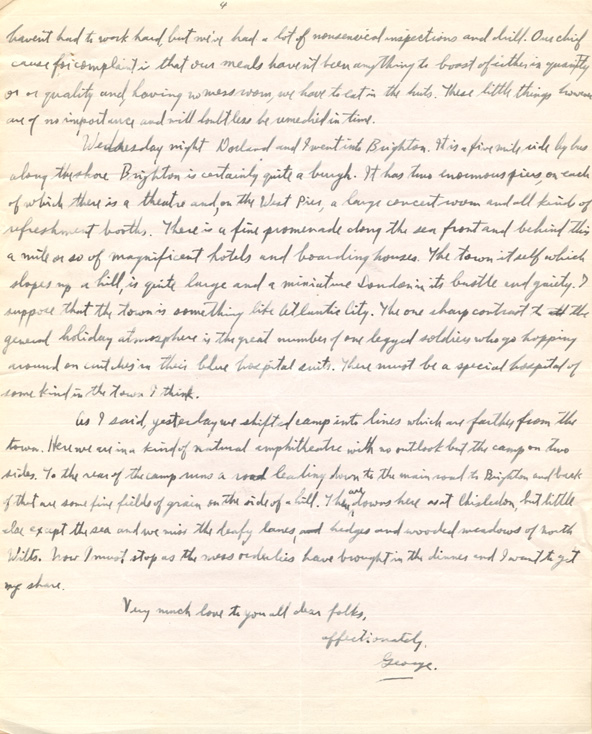 4
haven't had to work hard, but we've had a lot of nonsensical inspections and drill. Our chief
cause for complaint is that our meals haven't been anything to boast of either in quantity
or quality and, having no mess room, we have to eat in the huts. These little things however
are of no importance and will doubtless be remedied in time.
Wednesday night Dorland and I went into Brighton. It is a five mile ride by bus
along the shore Brighton is certainly quite a burgh. It has two enormous piers, on each
of which there is a theatre and, on the West Pier, a large concert room and all kind of
refreshment booths. There is a fine promenade along the sea front and behind this
a mile or so of magnificent hotels and boarding houses. The town itself which
slopes up a hill, is quite large and a miniature London in its bustle and gaiety. I
suppose that the town is something like Atlantic City. The one sharp contrast to the
general holiday atmosphere is the great number of one legged soldiers who go hopping
around on crutches in their blue hospital suits. There must be a special hospital of
some kind in the town I think.
As I said, yesterday we shifted camp into lines which are farther from the
town. Here we are in a kind of natural amphitheatre with no outlook but the camp on two
sides. To the rear of the camp runs a road leading down to the main road to Brighton and back
of that are some fine fields of grain on the side of a hill. There are downs here as at Chisledon, but little
else except the sea and we miss the leafy lanes and hedges and wooded meadows of North
Wilts. Now I must stop as the mess orderlies have brought in the dinner and I want to get
my share.
Very much love to you all dear folks,
affectionately.
George.